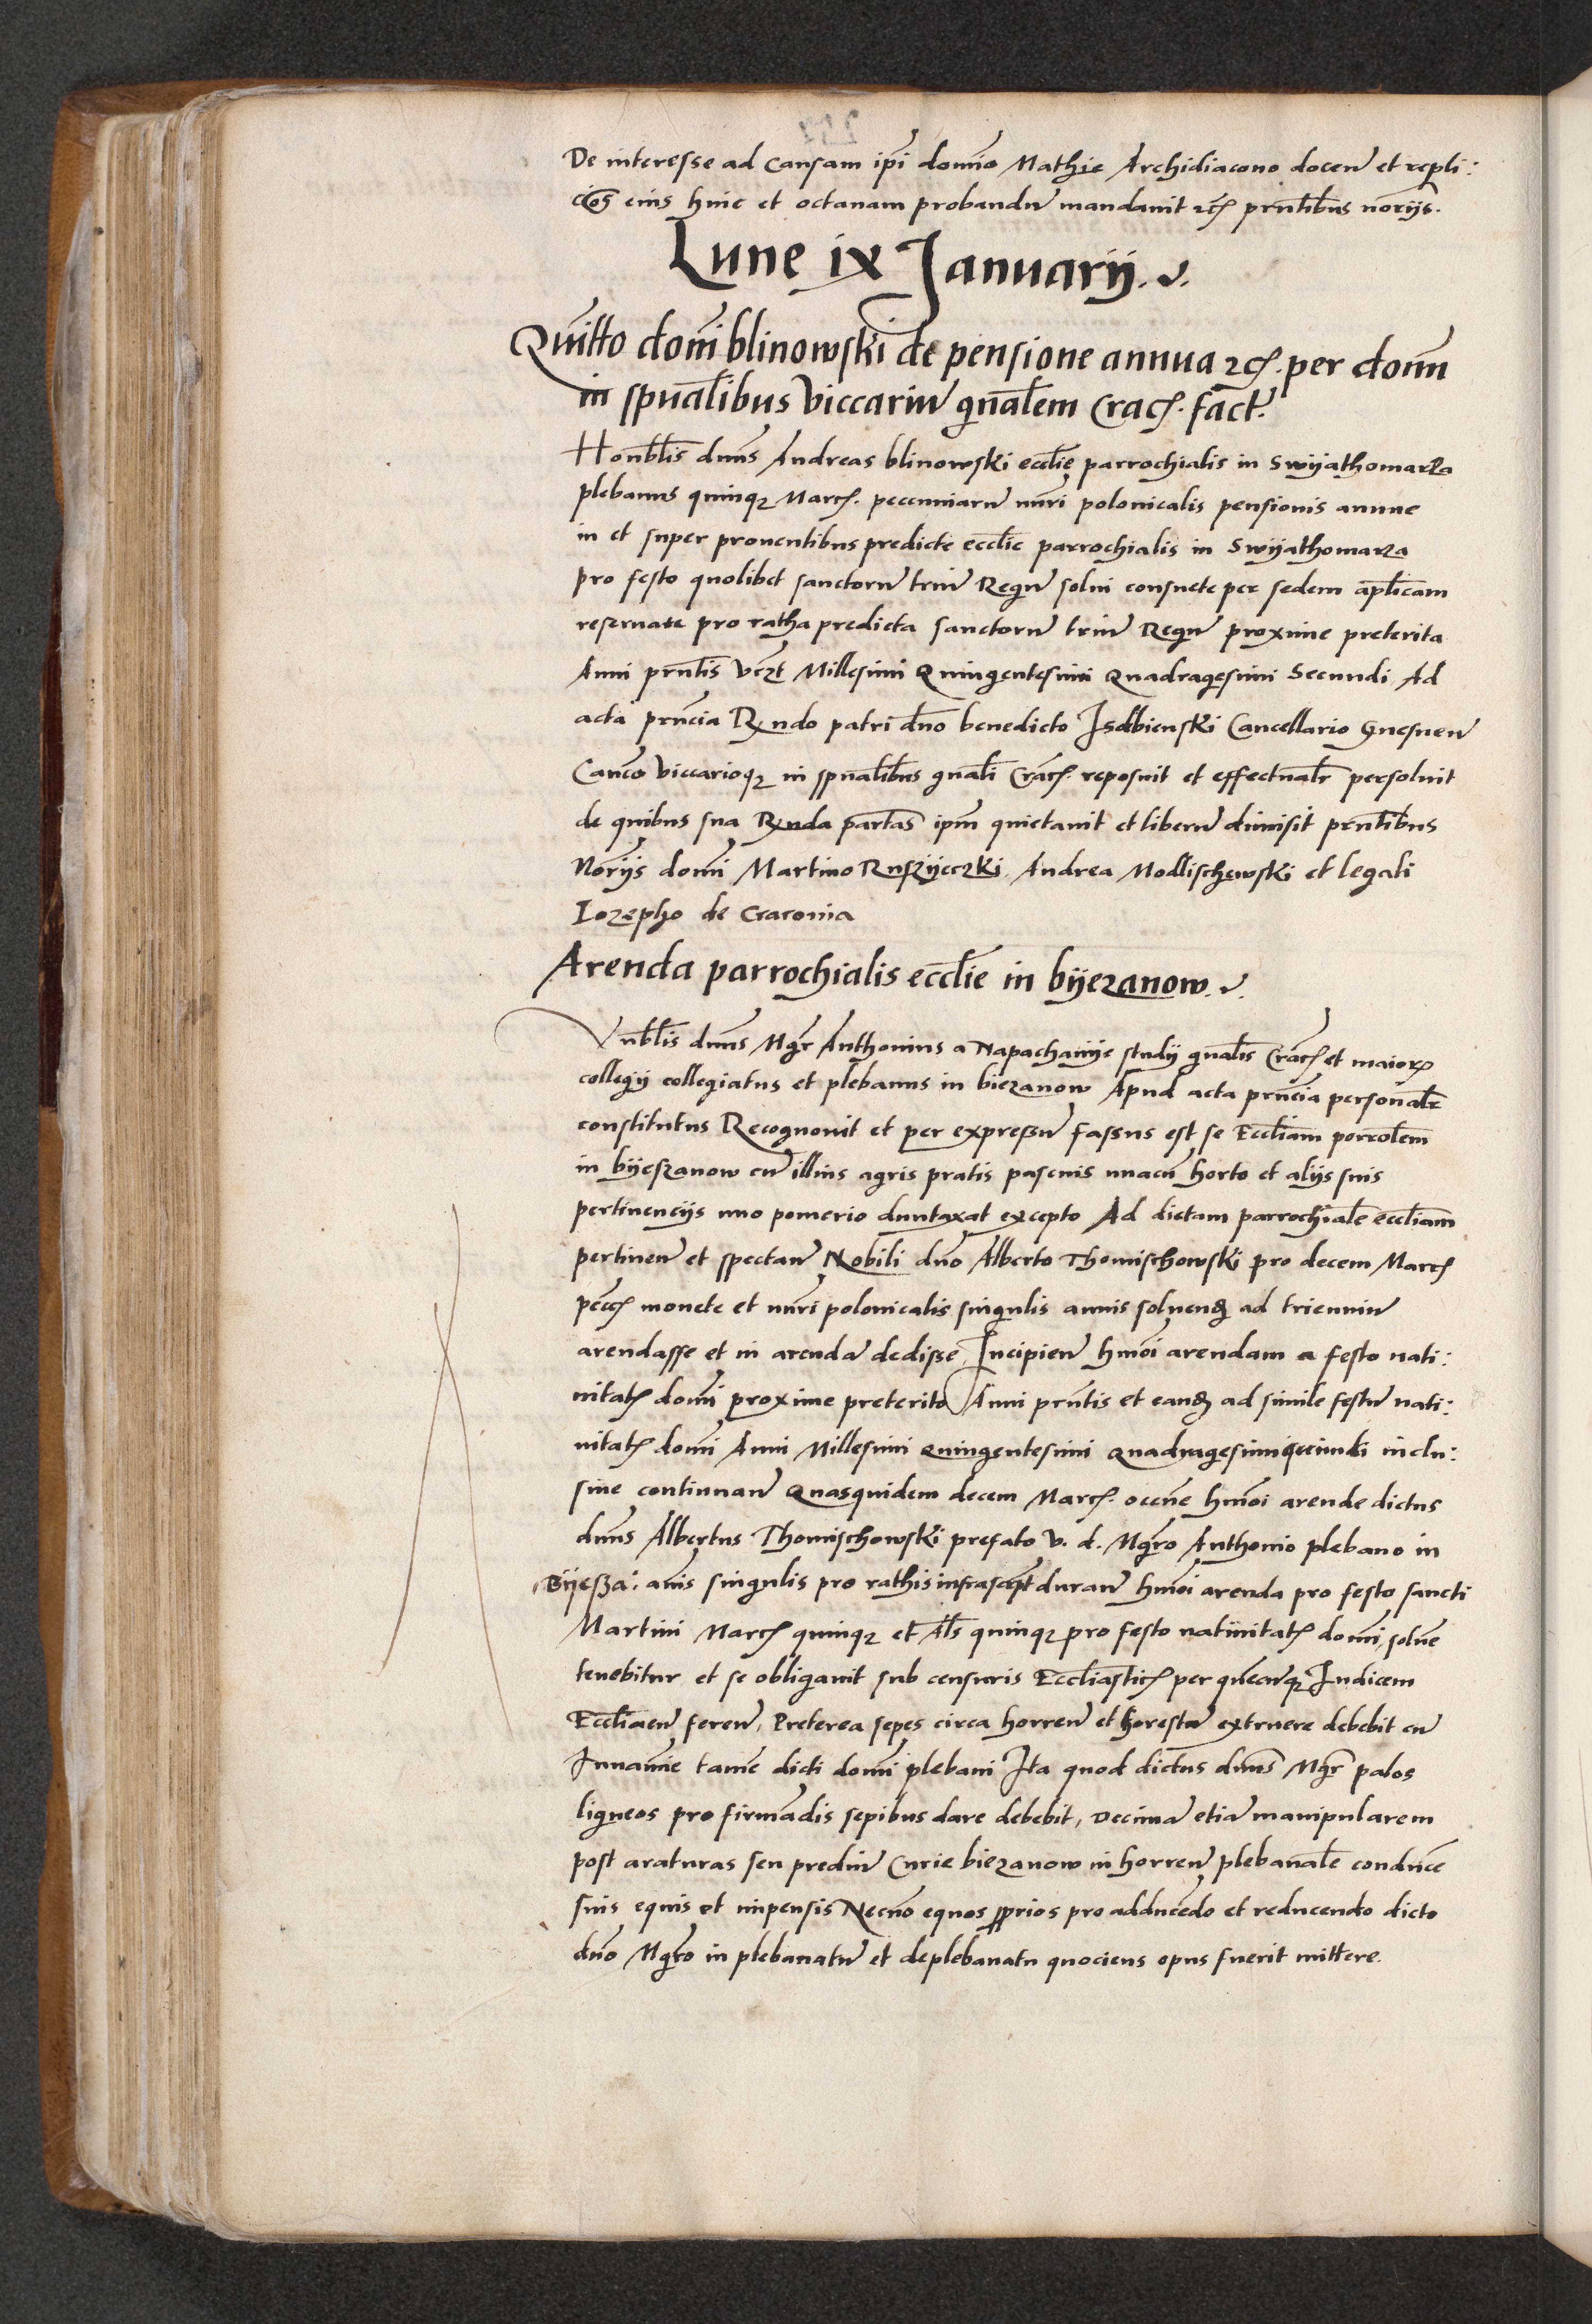 De interesse ad Causam ip̄i domīo Mathie Archidiacono docen̄ et repli:
c̄oēs eius huic et octauam probandū mandauit etc̄ pr̄ntibus nor̄ijs.
Lune ix Januarij.
Quitto domi blinowski de pensione annua etc̄. per domū
in sp̄ualibus Viccariū gn̄alem Crac̄. fact̄.
Honb̄lis dn̄us Andreas blinowski eccl̄ie parrochialis in Swijathomarza
plebanus quinqʒ Marc̄. pecunniarū nūri polonicalis pensionis annue
in et super prouentibus predicte eccl̄ie parrochialis in Swijathomarza
pro festo quolibet sanctorū triū Regū solui consuete per sedem ap̄licam
reseruate pro ratha predicta sanctorū triū Regū proxime preterita
Anni pr̄ntis vcʒt Millesimi Quingentesimi Quadragesimi Secundi Ad
acta pr̄ncia R̄ndo patri dn̄o benedicto Isdbienski Cancellario Gnesnen̄
Can̄co Viccarioqʒ in sp̄ualibus gn̄ali Crac̄. reposuit et effectualr̄ persoluit
de quibus sua R̄nda pat̄as ip̄m quietauit et liberū dimisit pr̄ntibus
Nor̄ijs domī Martino Ruszijeczki Andrea Modlischewski et legali
Iozepho de Cracouia
Arenda parrochialis eccl̄ie in bijezanow.
Vn̄blis dn̄us Mgr̄ Anthonius a Napachanije studij gn̄alis Crac̄ et maioris
collegij collegiatus et plebanus in biezanow Apud acta pr̄ncia personalr̄
constitutus Recognouit et per expressū fassus est se Eccl̄iam porrol̄em
in bijeszanow cū illius agris pratis pascuis unacū horto et alijs suis
pertinencijs uno pomerio duntaxat excepto Ad dictam parrochialē eccl̄iam
pertinen̄ et spectan̄ Nobili dn̄o Alberto Thomischowski pro decem Marc̄
pec̄c̄ monete et nūri polonicalis singulis annis soluendʒ ad trienniū
arendasse et in arendā dedisse Incipien̄ hm̄oi arendam a festo nati:
uitat̄ domī proxime preterito Anni pr̄ntis et eandʒ ad simile festū nati:
uitat̄ domī Anni Millesimi Quingentesimi Quadragesimi secundi inclu:
siue continuan̄ Quasquidem decem Marc̄. occ̄ne hm̄oi arende dictus
dn̄us Albertus Thomischowski prefato v. d. Mgr̄o Anthonio plebano in
Bijesza: anīs singulis pro rathis infrascript̄ duran̄ hm̄oi arenda pro festo sancti
Martini Marc̄ quinqʒ et al̄s quinqʒ pro festo natiuitat̄ domī soluē
tenebitur et se obligauit sub censuris Eccl̄iastic̄ per quēcūqʒ Iudicem
Eccl̄iaen̄ feren̄, Preterea sepes circa horreū et horestā extruere debebit cū
Iuuamīe tamē dicti domī plebani Ita quod dictus dn̄us Mgr̄ palos
ligneos pro firmādis sepibus dare debebit, Decimā etiā manipularem
post araturas seu prediū Curie biezanow in horreū plebanalē conducē
suis equis et impensis Necnō equos proprios pro adducēdo et reducendo dicto
dn̄o Mgr̄o in plebanatū et de plebanatu quociens opus fuerit mittere.